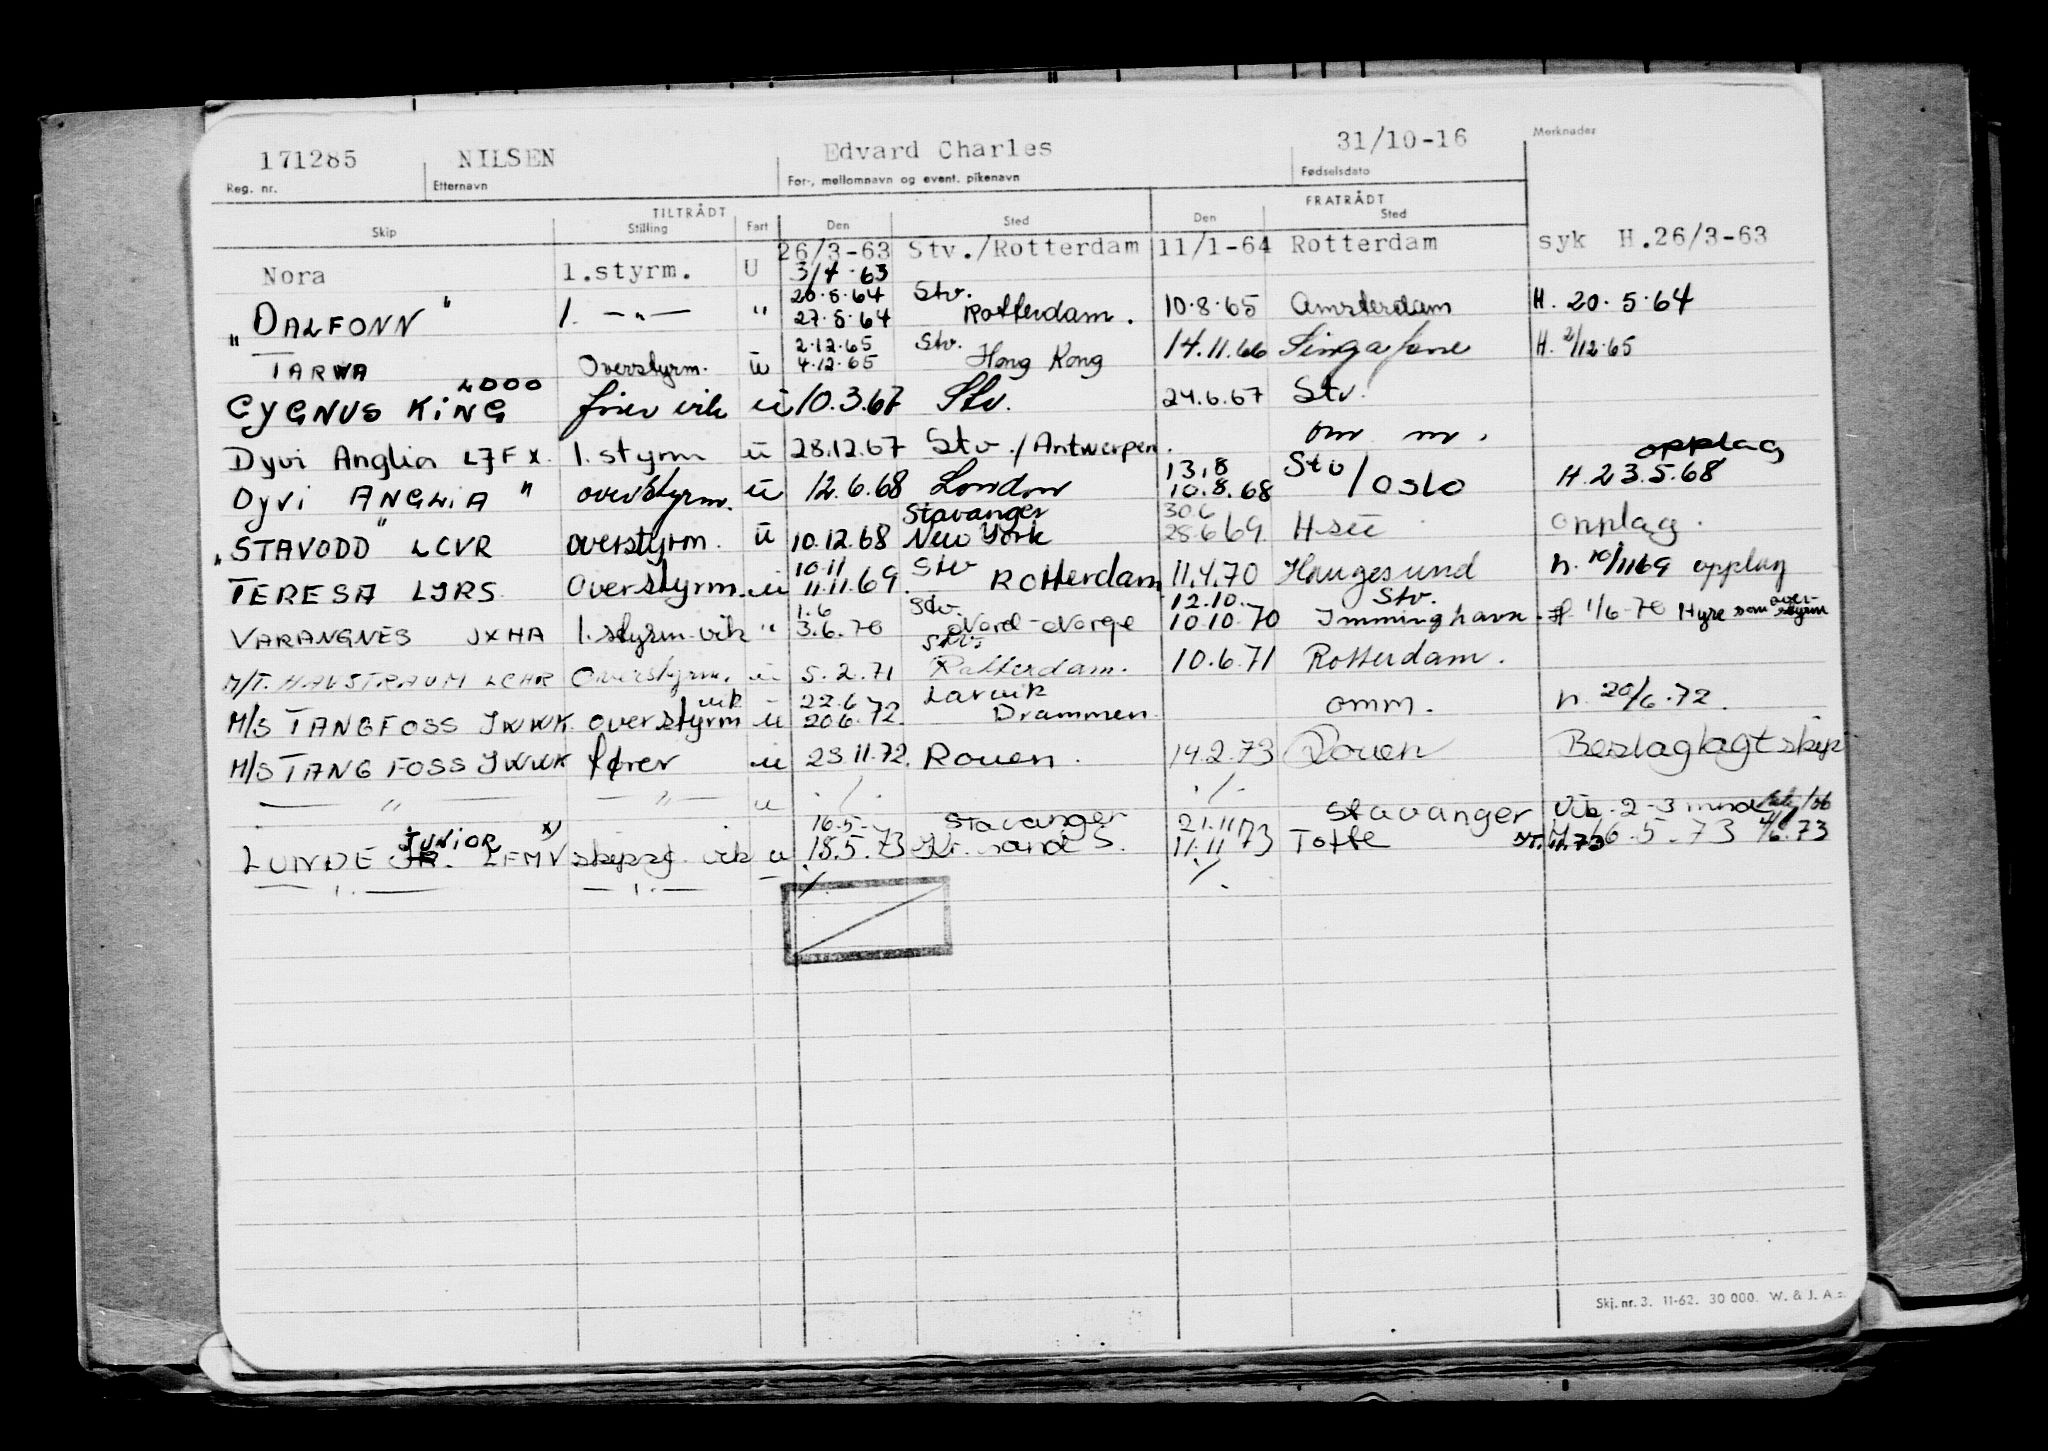 171285 NILSEN Edvard Charles 31/10-16 Merknader
Reg. nr. Etternavn For-, mellomnavn og event. pikenavn Fødselsdato
TILTRÅDT FRATRÅDT
Skip Stilling Fart Den Sted Den Sted
26/3-63 Stv./Rotterdam 11/1-64 Rotterdam syk H.26/3-63
Nora 1.styrm. U 3/4·63
20·5·64 Stv.
„DALFONN" 1. —"— " 27·5·64 Rotterdam. 10·8·65 Amsterdam H. 20·5·64
2·12·65 Stv.
TARWA Overstyrm. ū 4·12·65 Hong Kong 14.11.66 Singapore H. 2/12·65
LDOO
CYGNUS KiNG fører vik ū 10.3.67 Stv. 24.6.67 Stv.
Dyvi Anglia LJFX. 1. styrm ū 28.12.67 Stv./Antwerpen. om m. opplag
13.8 Stv
Dyvi ANGLiA " overstyrm. ū 12.6.68 London 10.8.68 /Oslo H.23.5.68
Stavanger 30.6
„STAVODD" LCVR overstyrm. ū 10.12.68 New York 28.6.69. H-sec opplag.
10.11 Stv
TERESA LJRS Overstyrm. u 11.11.69. Rotterdam 11.4.70 Haugesund h. 10/1169 opplag
1.6 Stv. 12.10. Stv. over-
VARANGNES JXHA 1.styrm vik " 3.6.70 Nord-Norge 10.10.70 Imminghavn. H. 1/6-70 Hyre som styrm
Stv.
M/T. HAUSTRAUM LCHR Overstyrm. u 5.2.71 Rotterdam. 10.6.71 Rotterdam.
vik 22.6 Larvik
M/S TANGFOSS JWWK overstyrm ū 20.6.72. Drammen. omm. h. 20/6.72.
M/S TANGFOSS JWWK fører u 23.11.72. Rouen. 14.2.73 Rouen Beslaglagt skip
— " — — " — u ./. ./.
16.5. Stavanger 21.11 Stavanger Vik. 2-3 mnd
JUNiOR x)
LUNDE JR. LFMV skipsf. vik u 18.5.73 Kr.sand S. 11.11 73 Tofte 16.5.73 4/6.73
— ı. — — ı. — — ./. ./.
Skj. nr. 3. 11-62. 30 000. W. & J. A.s.